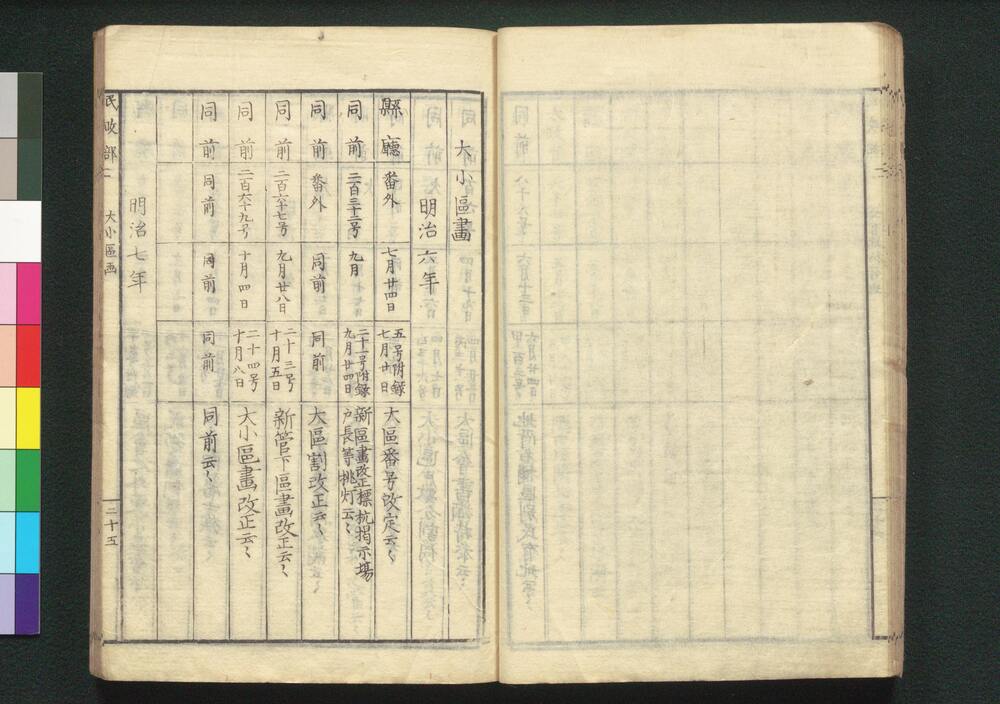 大小區畫
明治六年
縣廳 番外 七月廿四日 五号附録 七月廿日 大區番号改定云〻
同前 二百三十二号 九月 二十一号附録 九月廿四日 新區畫改正標杭掲示場 戸長等挑灯云〻
同前 番外 同前 同前 大區割改正云〻
同前 二百六十七号 九月廿八日 二十三号 十月五日 新管下區畫改正云〻
同前 二百六十九号 十月四日 二十四号 十月八日 大小區畫改正云〻
同前 同前 同前 同前 同前云〻
明治七年
民政部二 大小區画 二十五